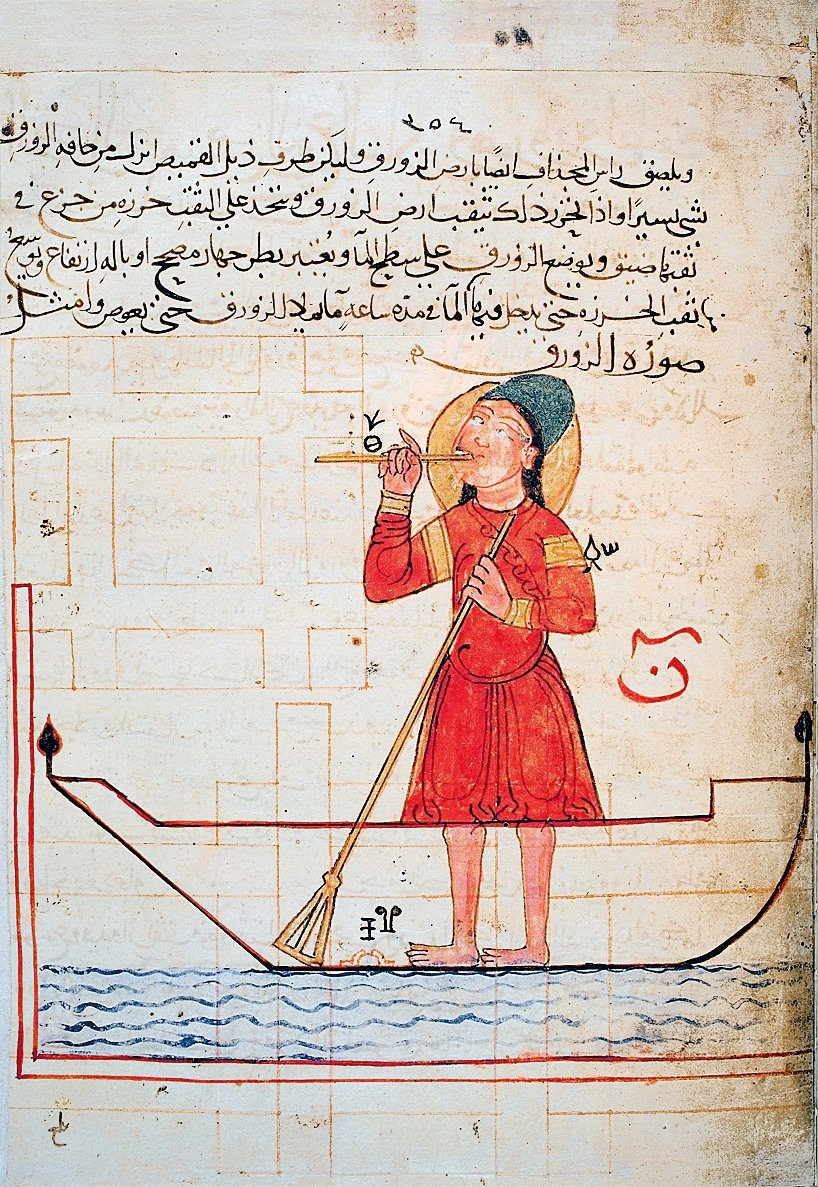 ويلصق راس المجذاف ايضًا بارض الزورق وليكن طرف ذيل القميص انزل من حافه الزورق
شى يسيرًا واذا نجز ذلك تثقب ارض الزورق ويتخذ على الثقب خرزه من جزع فى
ثقبها ضيق ويوضع الزورق على سطح الما ويعتبر بطرجهاره او باله ارتفاع ويوسع
ثقب الخرزه حتى يدخل فيها الما فى مده ساعه ما يملا الزورق حتى يغوص وامثل
صوره الزورق
ن